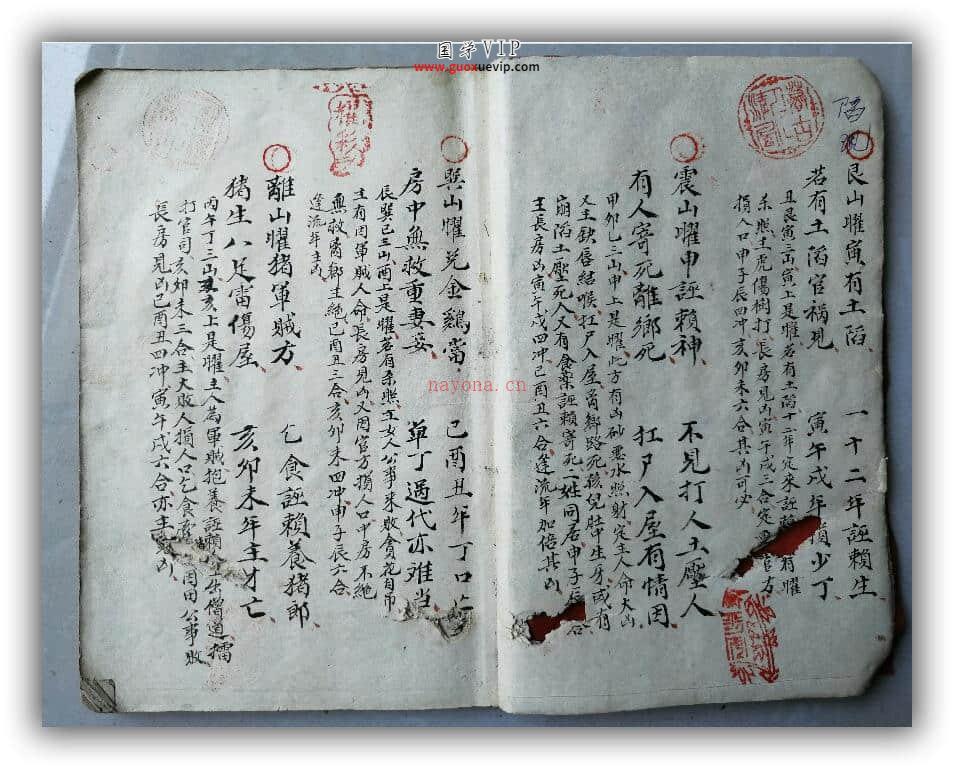 国学VIP
www.guoxuevip.com
nayona.cn
艮山曜寅有土陷 一十二年誣賴生
若有土陷官禍見 寅午戌年損少丁
丑艮寅三山寅上是曜若有土陷十二年定來誣賴 有曜
杀照主虎傷樹打長房見凶寅午戌三合定 官方
損人口申子辰四冲亥卯未六合其凶可必
震山曜申誣賴神 不見打人土壓人
有人寄死離鄉死 扛尸入屋有情因
甲卯乙三山申上是曜此方有凶砂惡水照射定主人命大凶
又主缺唇結喉扛尸入屋 鄉路死孩兒肚中生牙或有
崩陷土壓死人又有食藥誣賴寄死二姓同居申子辰 合
主長房凶寅午戌四冲巳酉丑六合逢流年加倍其凶
巽山曜兑金鷄當 巳酉丑年丁口亡
房中無救重妻妾 单丁過代亦难当
辰巽巳三山酉上是曜若有杀照主女人公事来败貪花自吊
主有因軍賊人命長房見凶又因官方損人口中房不絕
無救 鄉主絕巳酉丑三合亥卯未四冲申子辰六合
逢流年主凶
離山曜猪軍賊方 乞食誣賴養猪郎
猪生八足雷傷屋 亥卯未年主才亡
丙午丁三山亥上是曜主人為軍賊抱養誣賴 出僧道擂
打官司亥卯未三合主大敗人損人口乞食 因田公事敗
長房見凶巳酉丑四冲寅午戌六合亦主 凶